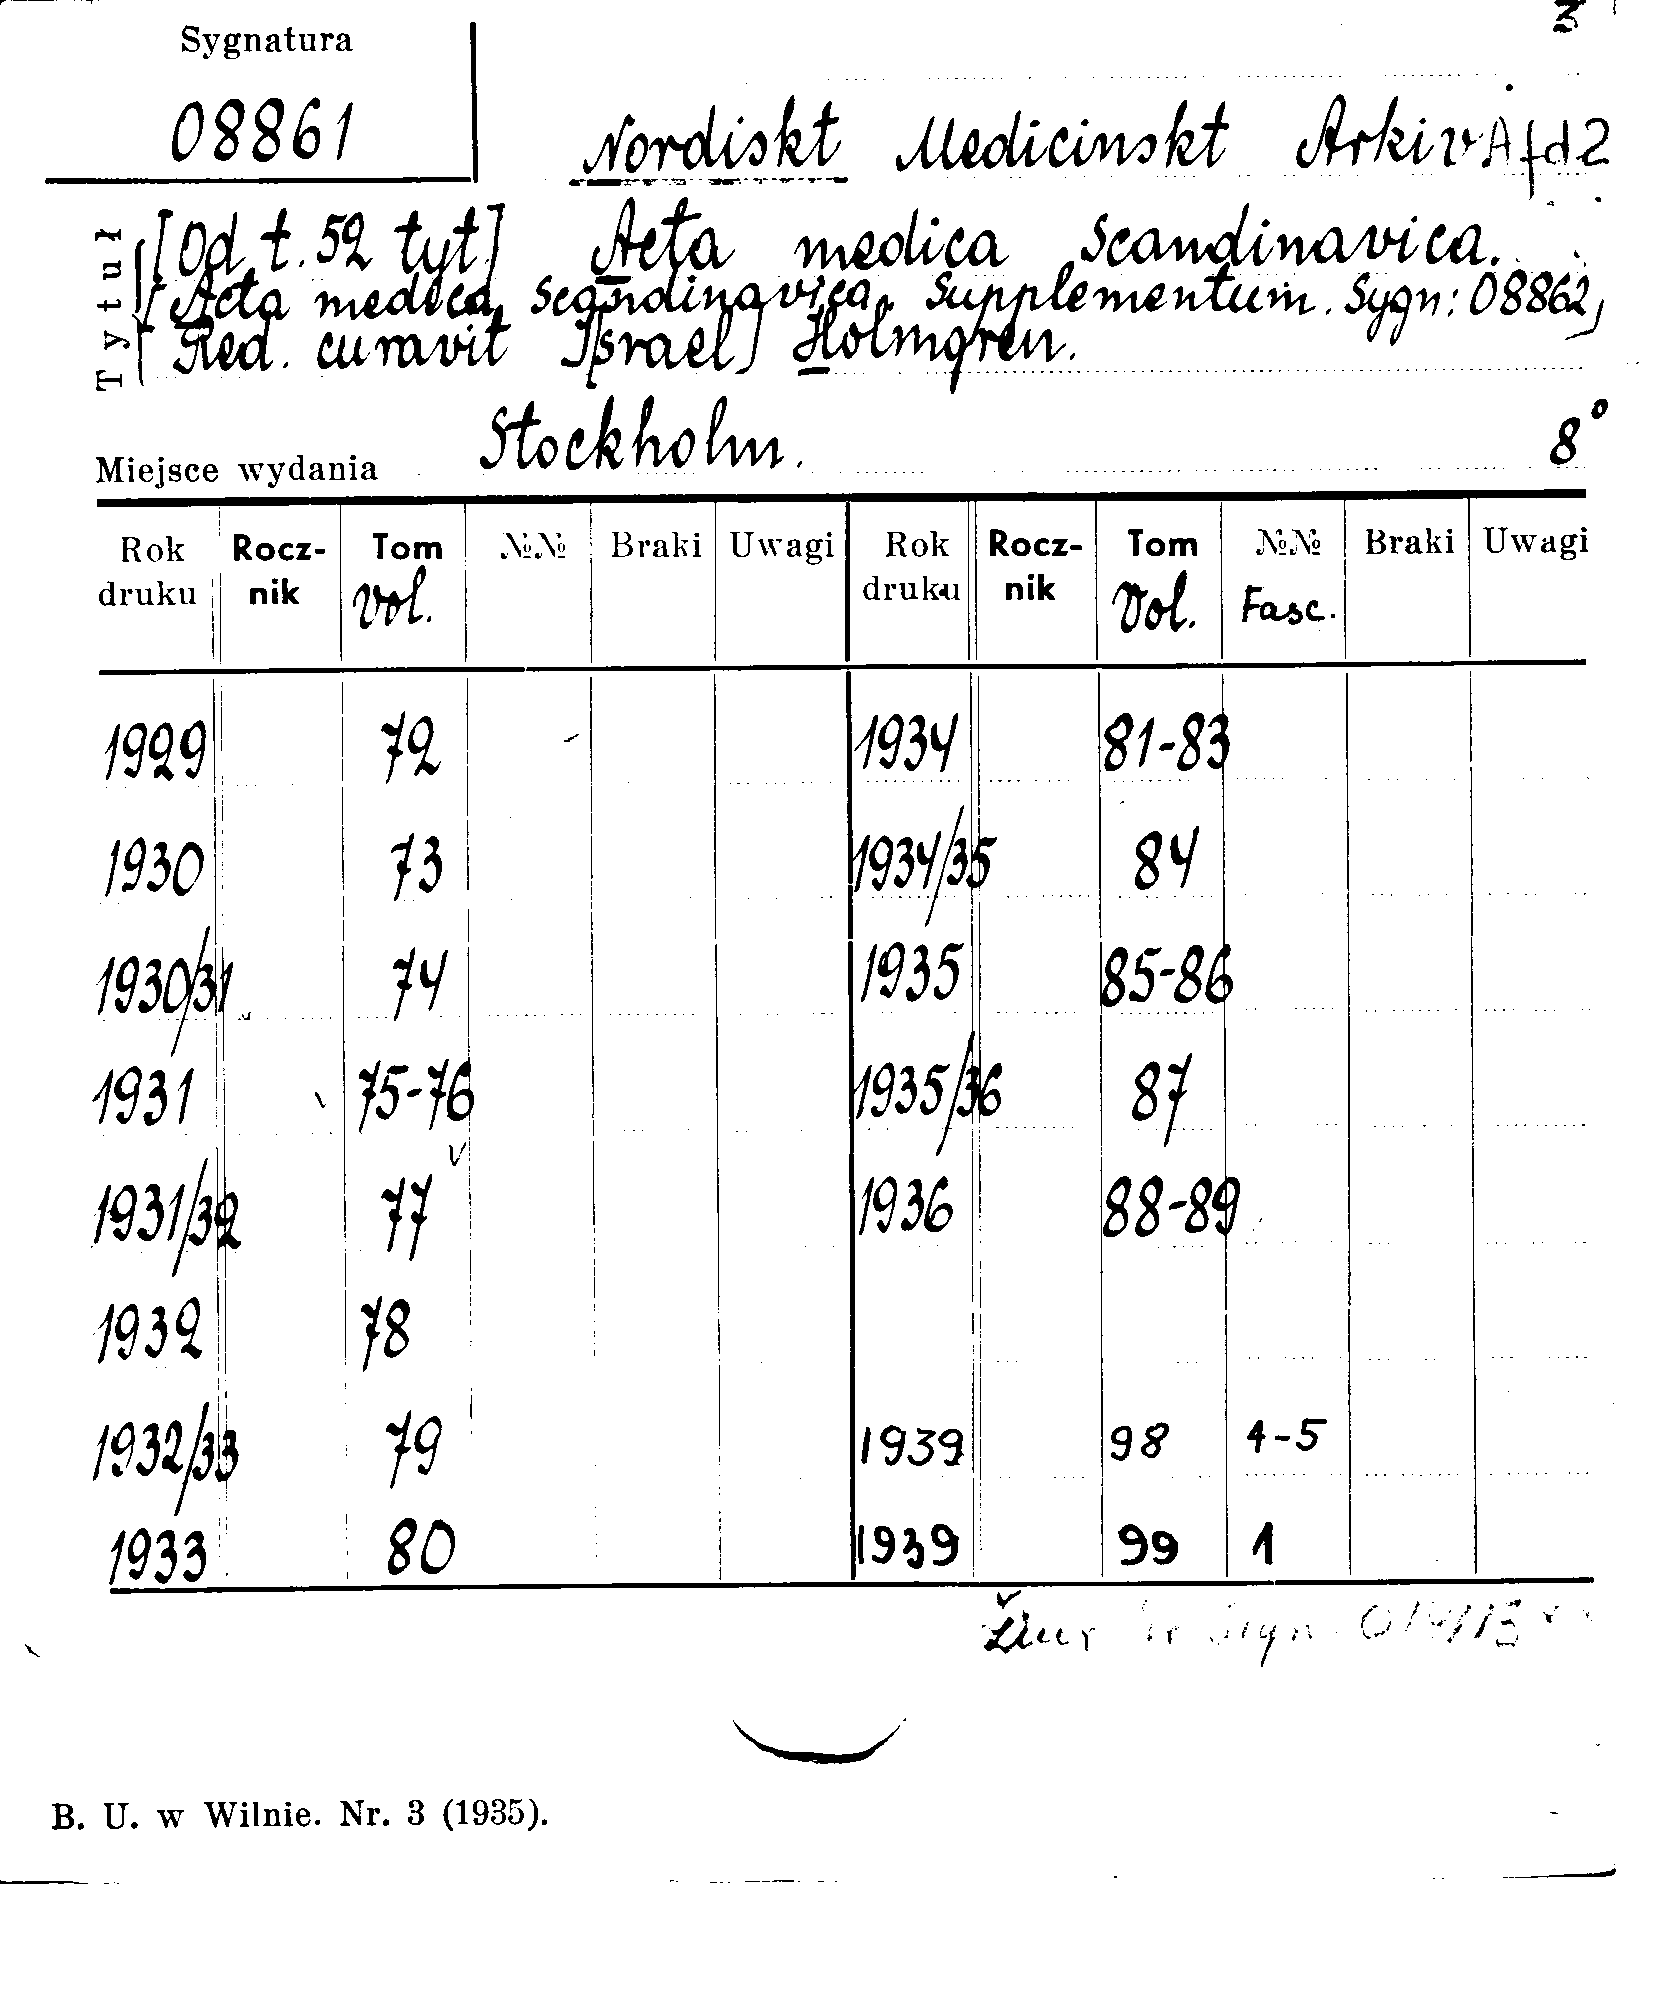 3
Sygnatura
08861
Nordiskt Medicinskt Arkiv Afd 2
Tytuł
[Od t. 52 tyt] Acta medica Scandinavica.
[Acta medica Scandinavica. Supplementum. Sygn: 08862,
Red. curavit I[srael] Holmgren.
Miejsce wydania Stockholm. 8°
Rok druku Rocz-nik Tom Vol. №№ Braki Uwagi Rok druku Rocz-nik Tom Vol. №№ Fasc. Braki Uwagi
1929 72 1934 81-83
1930 73 1934/35 84
1930/31 74 1935 85-86
1931 75-76 1935/36 87
1931/32 77 1936 88-89
1932 78
1932/33 79 1939 98 4-5
1933 80 1939 99 1
B. U. w Wilnie. Nr. 3 (1935).